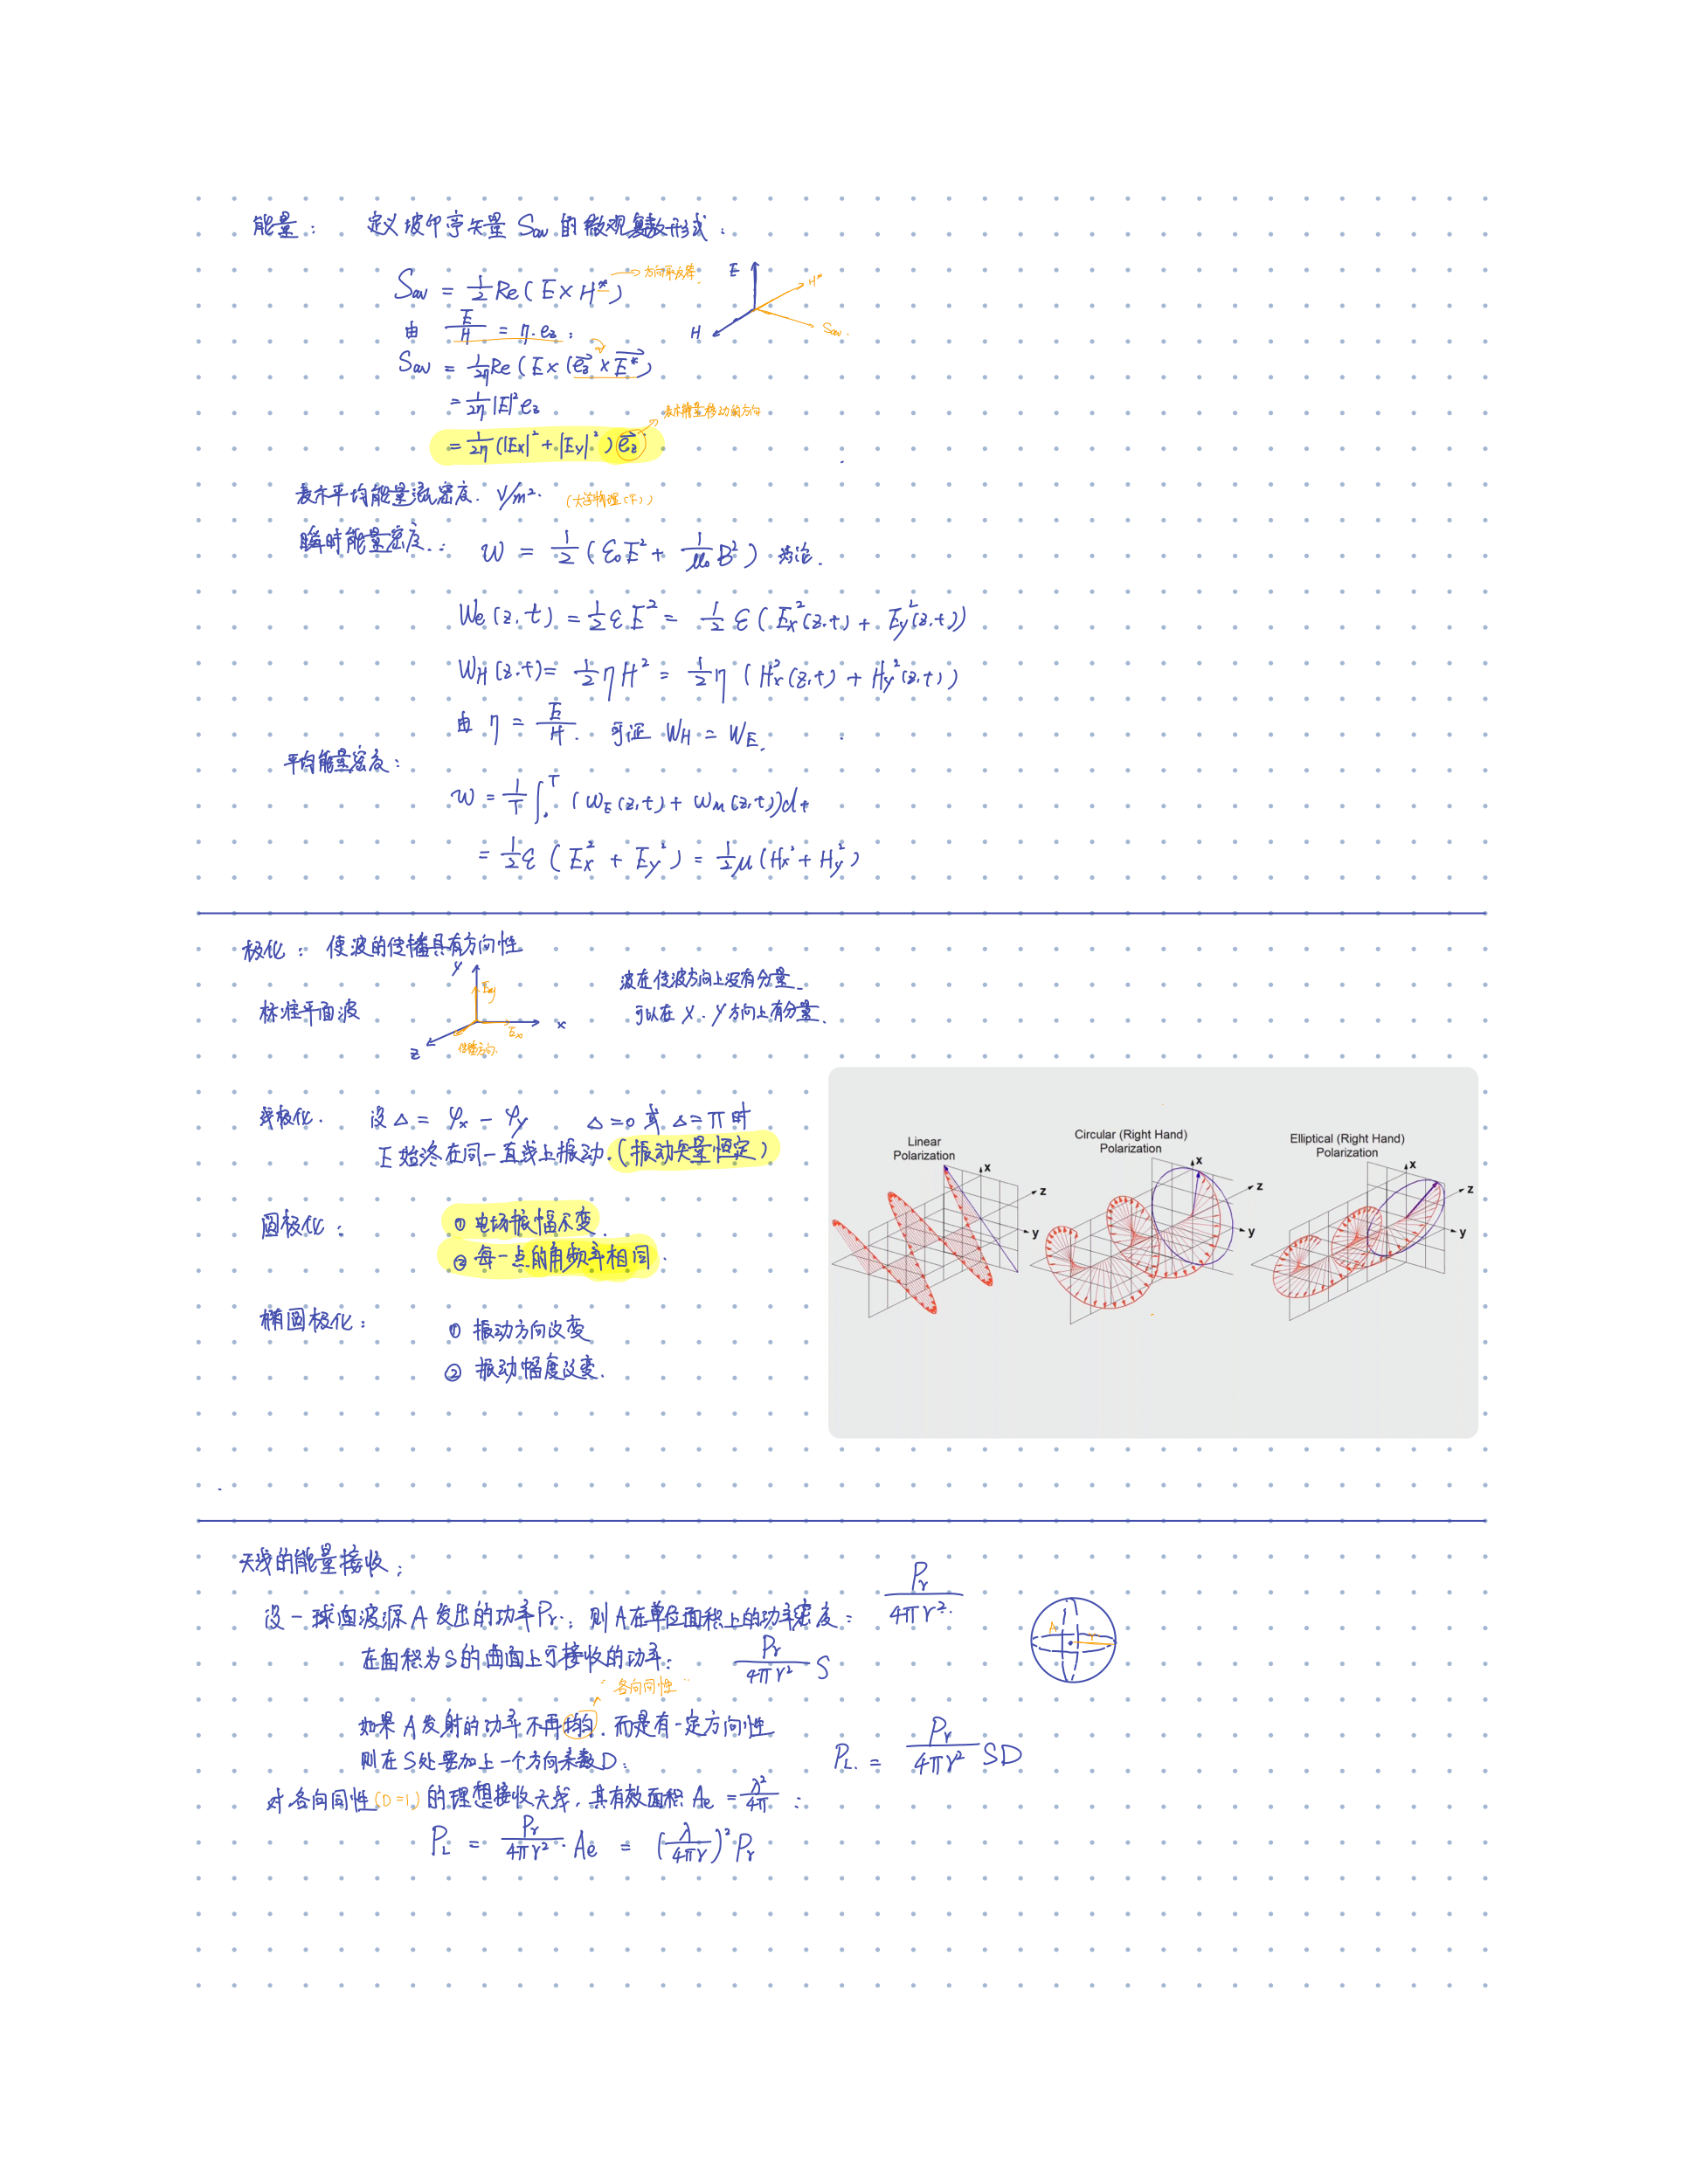 能量： 定义坡印亭矢量 Sav 的微观复数形式：
Sav = 1/2 Re(E×H*) → 方向取反等.
E H H* Sav.
由 E/H = η·ez：
Sav = 1/2η Re(E×(ez×E*)
= 1/2η |E|² ez
→ 表示能量移动的方向
= 1/2η (|Ex|²+|Ey|²) ez
表示平均能量流密度. V/m². (大学物理(下))
瞬时能量密度.： w = 1/2 (ε₀E² + 1/μ₀ B²)
We(z,t) = 1/2 εE² = 1/2 ε(Ex²(z,t) + Ey²(z,t))
WH(z,t) = 1/2 ηH² = 1/2 η (Hx²(z,t) + Hy²(z,t))
由 η = E/H. 可证 WH = WE.
平均能量密度：
w = 1/T ∫₀ᵀ (wE(z,t) + wm(z,t))dt
= 1/2 ε (Ex² + Ey²) = 1/2 μ(Hx² + Hy²)
极化： 使波的传播具有方向性
标准平面波
y Ey x Ex z 传播方向.
波在传波方向上没有分量.
可以在 x. y方向上有分量.
线极化. 设 Δ = φx − φy Δ=0 或 Δ=π 时
E 始终在同一直线上振动.(振动矢量恒定)
圆极化： ① 电场振幅不变
② 每一点的角频率相同.
椭圆极化： ① 振动方向改变
② 振动幅度改变.
Linear
Polarization
x
z
y
Circular (Right Hand)
Polarization
x
z
y
Elliptical (Right Hand)
Polarization
x
z
y
天线的能量接收：
设一球面波源 A 发出的功率Pr.：则A在单位面积上的功率密度： Pr/4πr².
A r
在面积为S的曲面上可接收的功率： Pr/4πr² S
各向同性
如果 A发射的功率不再均匀. 而是有一定方向性
则在S处要加上一个方向系数D： PL. = Pr/4πr² SD
对各向同性(D=1.)的理想接收天线, 其有效面积 Ae = λ²/4π ：
PL = Pr/4πr² · Ae = (λ/4πr)² Pr